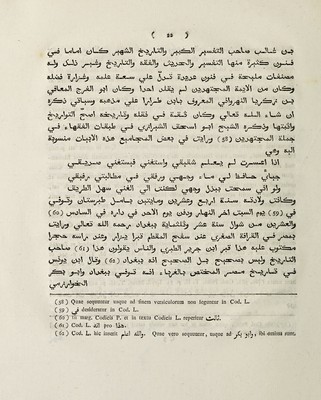 ( ٥٥ )
بن غالب صاحب التفسير الكبير والتاريخ الشهير كان اماما في
فنون كثيرة منها التفسير والحديث والفقه والتاريخ وغير ذلك وله
مصنفات مليحة في فنون عديدة تدل على سعة علمه وغزارة فضله
وكان من الايمة المجتهدين لم يقلد احدا وكان ابو الفرج المعافي
بن زكريا النهرواني المعروف بابن طرارا على مذهبه وسياتي ذكره
ان شاء الله تعالى وكان ثقة في نقله وتاريخه اصح التواريخ
واثبتها وذكره الشيخ ابو اسحق الشيرازي في طبقات الفقهاء في
جملة المجتهدين (58) ورايت في بعض المجاميع هذه الابيات منسوبة
اليه وهي
اذا اعسرت لم يعلم شقيقي واستغني فيستغني صديقي
حيائي حافظ لي ماء وجهي ورفقي في مطالبتي رفيقي
ولو اني سمحت ببذل وجهي لكنت الى الغنى سهل الطريق
وكانت ولادته سنة اربع وعشرين ومايتين بامل طبرستان وتوفي
في (59) يوم السبت اخر النهار ودفن يوم الاحد في داره في السادس (60)
والعشرين من شوال سنة عشر وثلثماية ببغداد رحمه الله تعالى ورايت
بمصر في القرافة الصغرى عند سفح المقطم قبرا يزار وعند راسه حجرا
مكتوب عليه هذا قبر ابن جرير الطبري والناس يقولون هذا (61) صاحب
التاريخ وليس بصحيح بل الصحيح انه ببغداد (62) وقال ابن يونس
في تاريخ مصر المختص بالغرباء انه توفي ببغداد وابو بكر
الخوارزمي
(58) Quae sequuntur usque ad finem versiculorum non leguntur in Cod. L.
(59) في desideratur in Cod. L.
(60) In marg. Codicis P. et in textu Codicis L. reperitur ثالث.
(61) Cod. L. انه pro هذا.
(62) Cod. L. hic inserit والله اعلم. Quae vero sequuntur, usque ad وابو بكر, ibi omissa sunt.